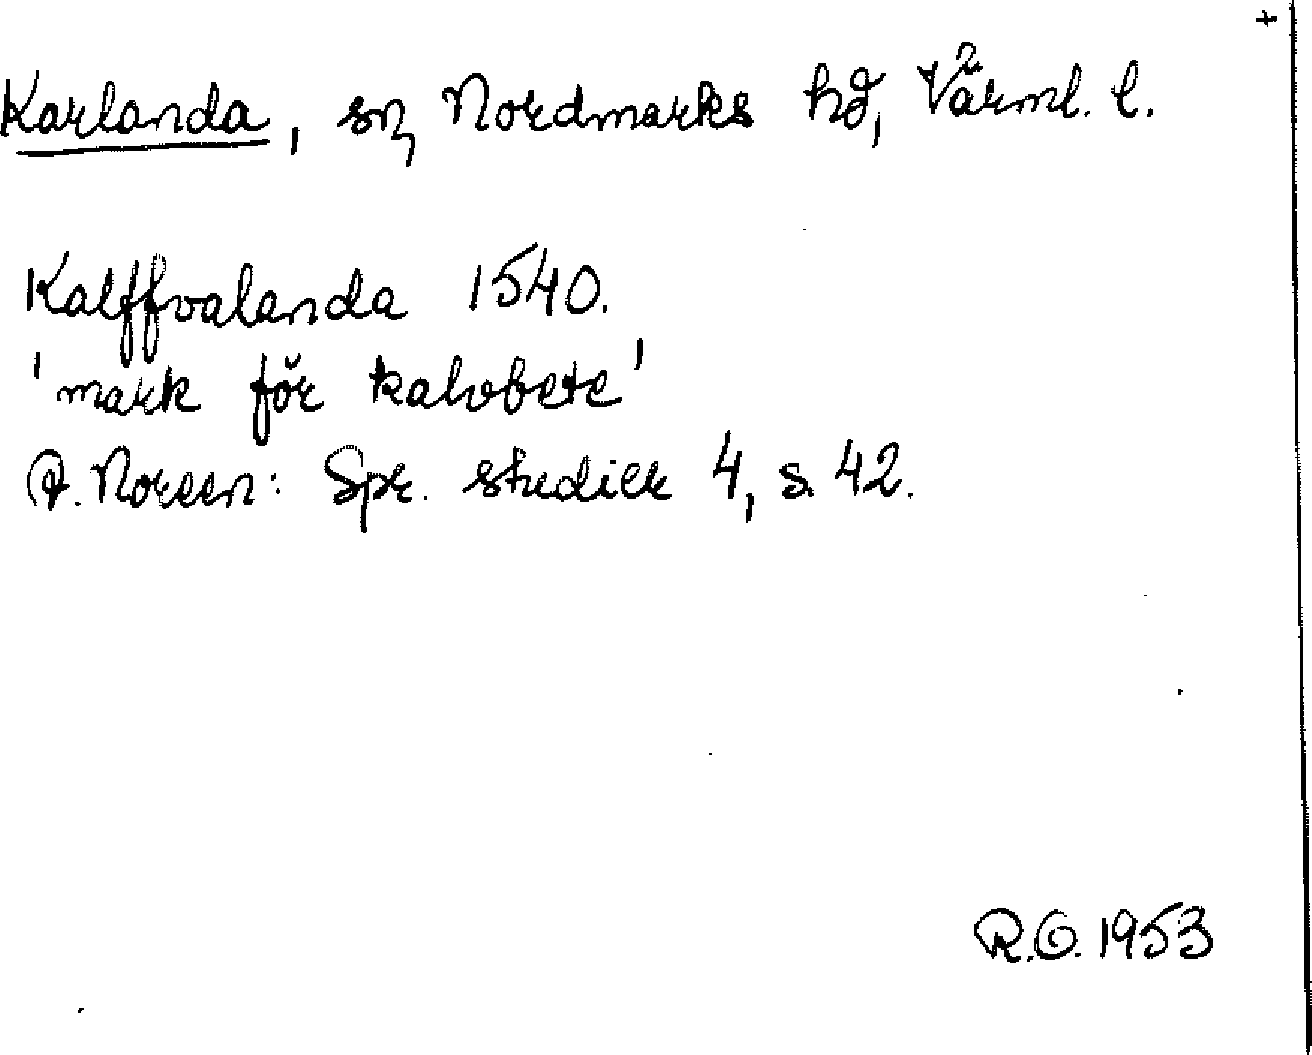 +
Karlanda, sn, Nordmarks hd, Värml. l.
Kalffvalanda 1540.
'mark för kalvbete'
A. Noreen: Spr. studier 4, s. 42.
R.O. 1953